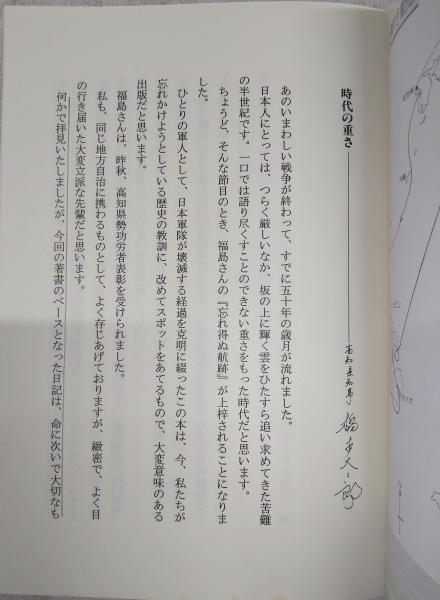 時代の重さ
高知県知事 橋本大二郎
あのいまわしい戦争が終わって、すでに五十年の歳月が流れました。
日本人にとっては、つらく厳しいなか、坂の上に輝く雲をひたすら追い求めてきた苦難
の半世紀です。一口では語り尽くすことのできない重さをもった時代だと思います。
ちょうど、そんな節目のとき、福島さんの『忘れ得ぬ航跡』が上梓されることになりま
した。
ひとりの軍人として、日本軍隊が壊滅する経過を克明に綴ったこの本は、今、私たちが
忘れかけようとしている歴史の教訓に、改めてスポットをあてるもので、大変意味のある
出版だと思います。
福島さんは、昨秋、高知県勢功労者表彰を受けられました。
私も、同じ地方自治に携わるものとして、よく存じあげておりますが、緻密で、よく目
の行き届いた大変立派な先輩だと思います。
何かで拝見いたしましたが、今回の著書のベースとなった日記は、命に次いで大切なも